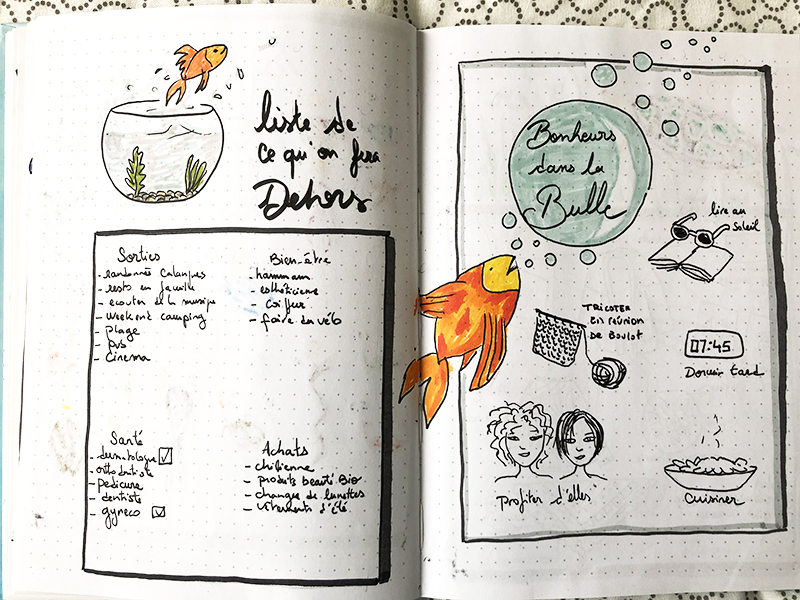 liste de
ce qu'on fera
Dehors
Sorties
- randonnée Calanques
- resto en famille
- ecouter de la musique
- weekend camping
- plage
- Cinema
Bien-être
- hammam
- esthéticienne
- Coiffeur
- faire du vélo
Santé
- dermatologue
- orthodontiste
- pedicure
- dentiste
- gyneco
Achats
- chilienne
- produits beauté Bio
- change de lunettes
- vêtements d'été
Bonheurs
dans la
Bulle
lire au
Soleil
TRICOTER
En réunion
DE BOULOT
07:45
Dormir tard
profiter d'elles
Cuisiner